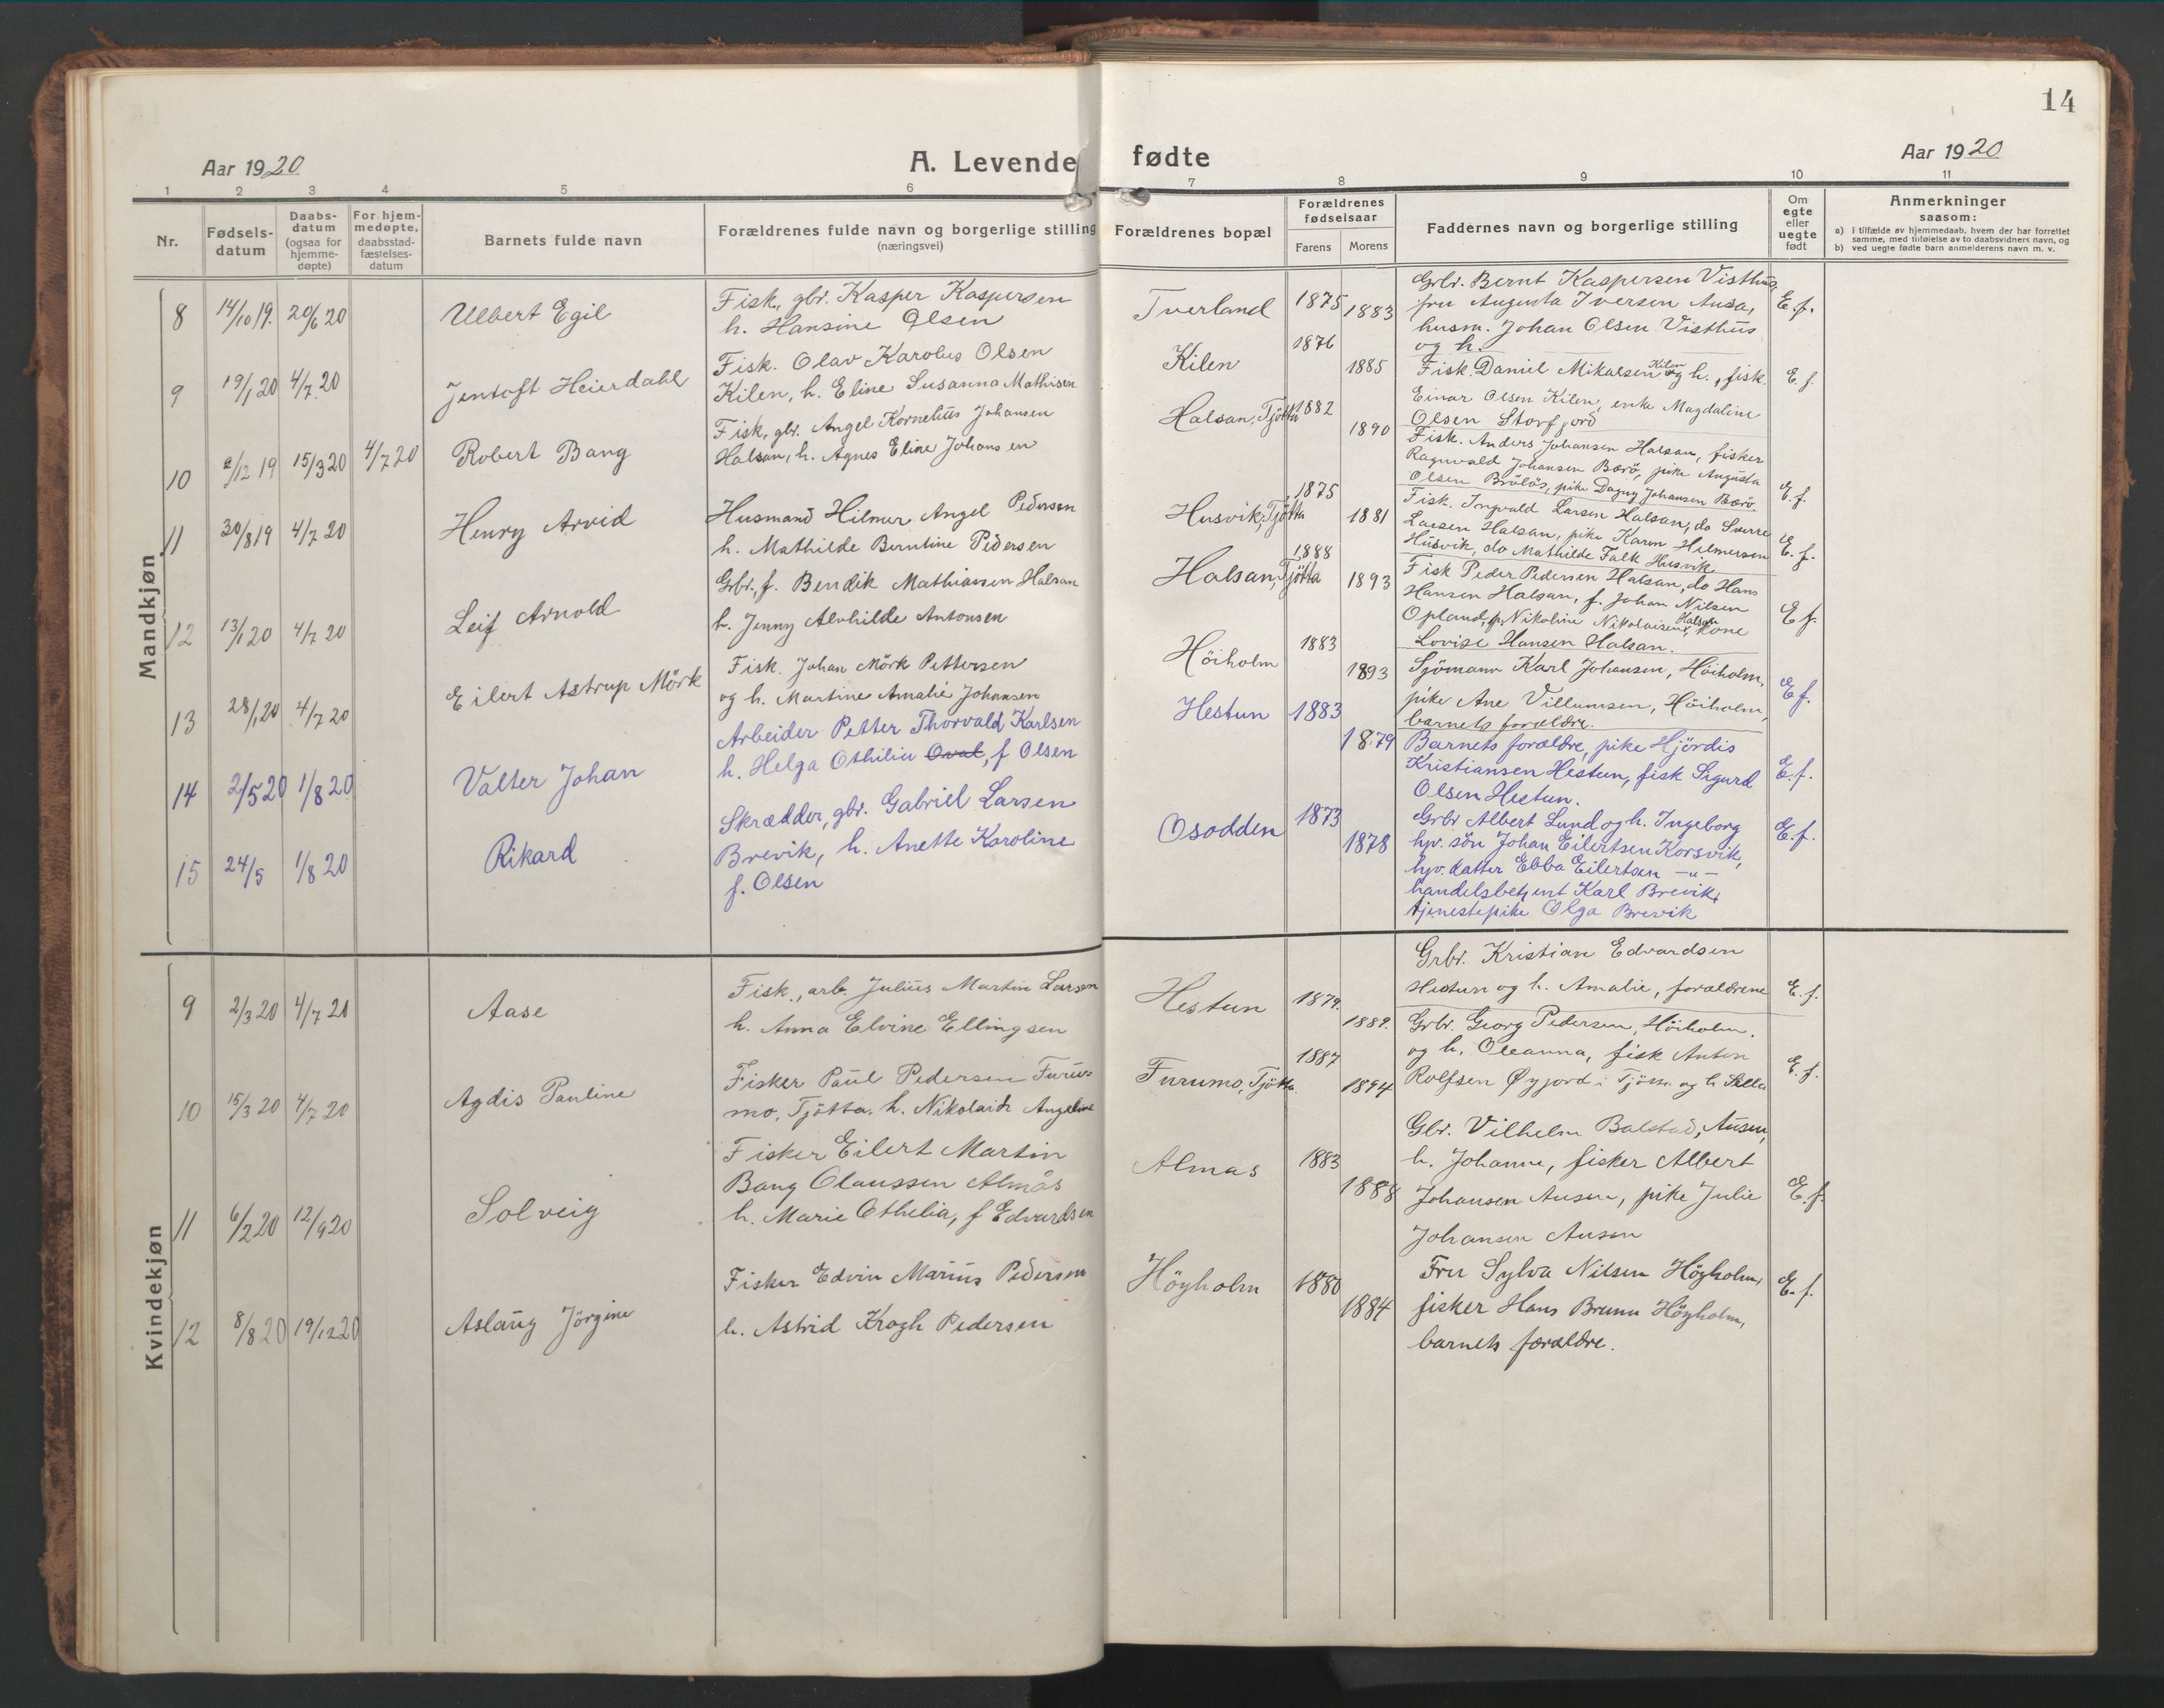 14
Aar 1920
A. Levende fødte
Aar 1920
1 2 3 4 5 6 7 8 9 10 11
Nr.
Fødsels-
datum
Daabs-
datum
(ogsaa for
hjemme-
døpte)
For hjem-
medøpte,
daabsstad-
fæstelses-
datum
Barnets fulde navn
Forældrenes fulde navn og borgerlige stilling
(næringsvei)
Forældrenes bopæl
Forældrenes
fødselsaar
Farens Morens
Faddernes navn og borgerlige stilling
Om
egte
eller
uegte
født
Anmerkninger
saasom:
a) i tilfælde av hjemmedaab, hvem der har forrettet
samme, med tilføielse av to daabsvidners navn, og
b) ved uegte fødte barn anmelderens navn m. v.
Mandkjøn
8 14/10 19. 20/6 20 Ulbert Egil
Fisk., gbr. Kasper Kaspersen
h. Hansine Olsen
Tverland 1875 1883
Grbr. Bernt Kaspersen Visthus,
fru Augusta Iversen Ausa,
husm. Johan Olsen Visthus
og h.
E. f.
9 19/1 20 4/7 20 Jentoft Heierdahl
Fisk. Olav Karolus Olsen
Kilen, h. Eline Susanna Mathisen
Kilen 1876 1885
Fisk. Daniel Mikalsen Kilen og h., fisk.
Einar Olsen Kilen, enke Magdaline
Olsen Storfjord
E. f.
10 /12 19 15/3 20 4/7 20 Robert Bang
Fisk, gbr. Angel Kornelius Johansen
Halsan, h. Agnes Eline Johansen
Halsan, Tjötta 1882 1890
Fisk. Anders Johansen Halsan, fisker
Ragnvald Johansen Bærö, pike Augusta
Olsen Brölös, pike Dagny Johansen Bærö.
E. f.
11 30/8 19 4/7 20 Henry Arvid
Husmand Hilmer Angel Pedersen
h. Mathilde Berntine Pedersen
Husvik, Tjötta 1875 1881
Fisk. Ingvald Larsen Halsan, do Sverre
Larsen Halsan, pike Karen Hilmersen
Husvik, do Mathilde Falk Husvik
E. f.
12 13/1 20 4/7 20 Leif Arnold
Grbr., f. Bendik Mathiassen Halsan
h. Jenny Alvhilde Antonsen
Halsan, Tjötta 1888 1893
Fisk Peder Pedersen Halsan, do Hans
Hansen Halsan, f. Johan Nilsen
Opland, p. Nikoline Nikolaisen Halsan, kone
Lovise Hansen Halsan.
E f.
13 28/1 20 4/7 20 Eilert Astrup Mörk
Fisk. Johan Mörk Pettersen
og h. Martine Amalie Johansen
Höiholm 1883 1893
Sjömann Karl Johansen, Höiholm,
pike Ane Villumsen, Höiholm,
barnets forældre.
E f.
14 2/5 20 1/8 20 Valter Johan
Arbeider Petter Thorvald Karlsen
h. Helga Othilie Oval, f Olsen
Hestun 1883 1879
Barnets forældre, pike Hjördis
Kristiansen Hestun, fisk Sigurd
Olsen Hestun.
E. f.
15 24/5 1/8 20 Rikard
Skrædder, gbr. Gabriel Larsen
Brevik, h. Anette Karoline
f. Olsen
Osodden 1873 1878
Grbr Albert Lund og h. Ingeborg
hjv. sön Johan Eilertsen Korsvik,
hjv. datter Ebba Eilertsen —"—
handelsbetjent Karl Brevik,
tjenestepike Olga Brevik
E. f.
Kvindekjøn
9 2/3 20 4/7 20 Aase
Fisk., arb. Julius Martin Larsen
h. Anna Elvine Ellingsen
Hestun 1879. 1889.
Grbr. Kristian Edvardsen
Hestun og h. Amalie, forældrene
E. f.
10 15/3 20 4/7 20 Agdis Pauline
Fisker Paul Pedersen Furu-
mo, Tjötta. h. Nikolaide Angeline
Furumo, Tjötta 1887 1894
Grbr. Georg Pedersen, Höiholm.
og h. Oleanna, fisk Anton
Rolfsen Øyjord i Tjötta og h
E. f.
11 6/2 20 12/9 20 Solveig
Fisker Eilert Martin
Bang Olaussen Almås
h. Marie Othelia, f Edvardsen
Almas 1883 1888
Gbr. Vilhelm Balstad, Ausen,
h. Johanne, fisker Albert
Johansen Ausen, pike Julie
Johansen Ausen
E. f.
12 8/8 20 19/12 20 Aslaug Jörgine
Fisker Edvin Marius Pedersen
h. Astrid Krogh Pedersen
Höyholm 1880 1884
Fru Sylva Nilsen Höyholm,
fisker Hans Brunn Höyholm,
barnets forældre.
E. f.